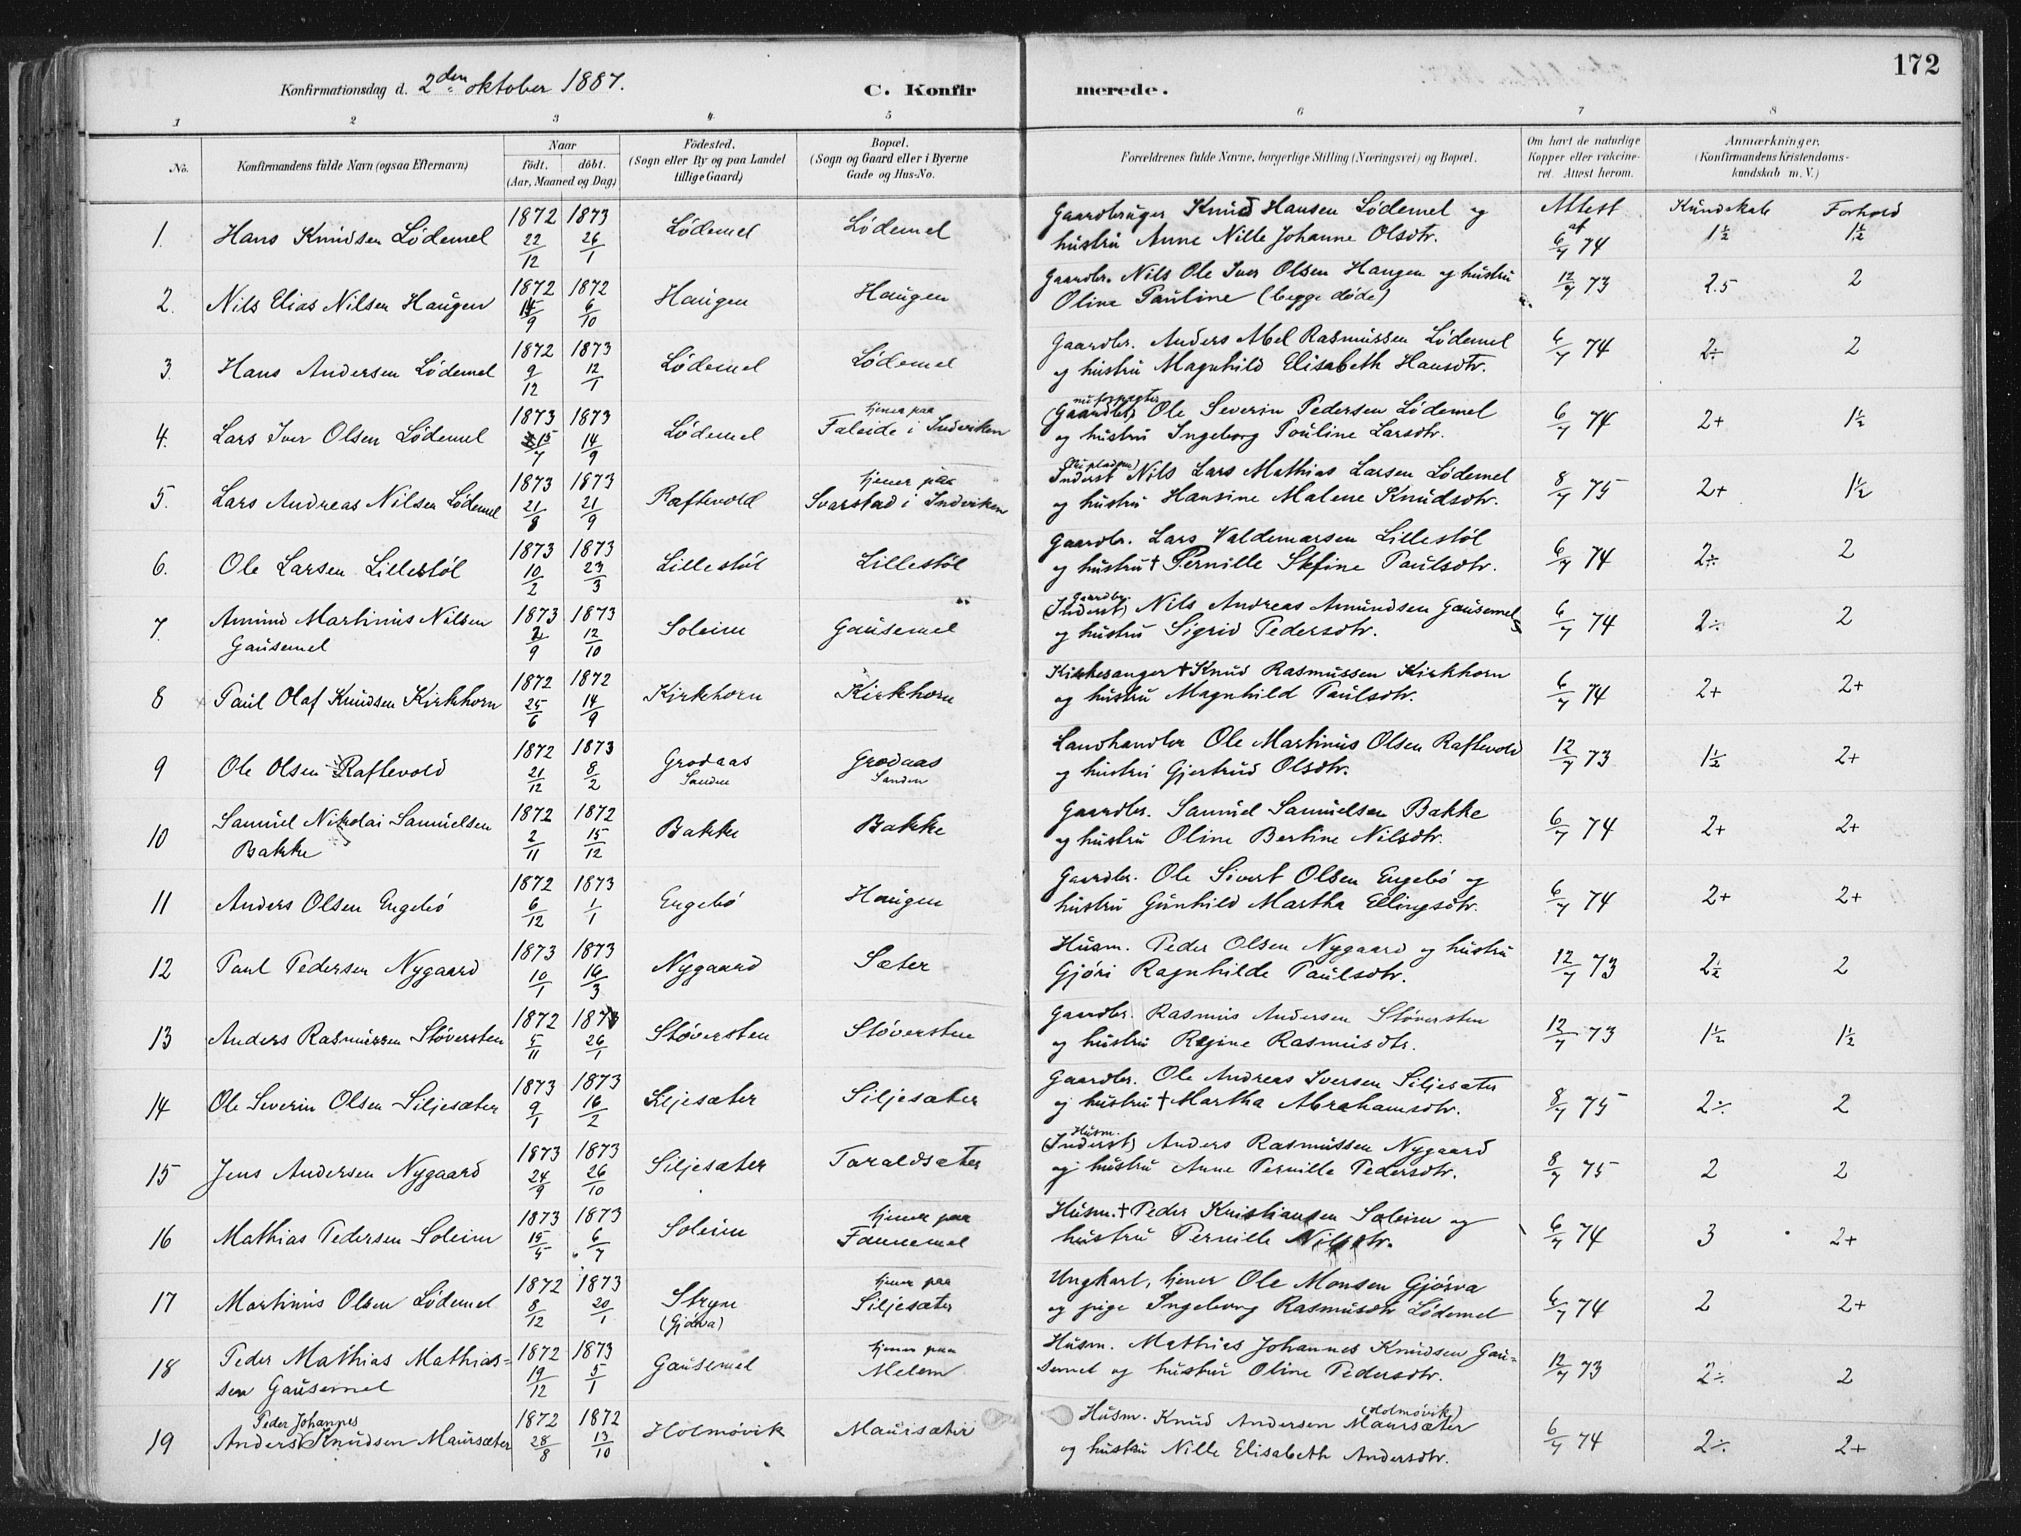 172
Konfirmationsdag d. 2den oktober 1887. C. Konfir merede.
1 2 3 4 5 6 7 8
No. Konfirmandens fulde Navn (ogsaa Efternavn) Naar født. døbt. (Aar, Maaned og Dag.) Fødested. (Sogn eller By og paa Landet tillige Gaard.) Bopæl. (Sogn og Gaard eller i Byerne Gade og Hus-No. Forældrenes fulde Navne, borgerlige Stilling (Næringsvei) og Bopæl. Om havt de naturlige Kopper eller vakcineret. Attest herom. Anmærkninger. (Konfirmandens Kristendomskundskab m. V.)
Attest af Kundskab Forhold
1. Hans Knudsen Lödemel 1872 22/12 1873 26/1 Lödemel Lödemel Gaardbruger Knud Hansen Lödemel og
hustru Anne Nille Johanne Olsdtr. 6/7 74 1½ 1½
2. Nils Elias Nilsen Haugen 1872 15/9 1872 6/10 Haugen Haugen Gaardbr. Nils Ole Iver Olsen Haugen og hustru
Oline Pauline (begge døde) 12/7 73 2.5 2
3. Hans Andersen Lödemel 1872 9/12 1873 12/1 Lödemel Lödemel Gaardbr. Anders Abel Rasmussen Lödemel
og hustru Magnhild Elisabeth Hansdtr. 6/7 74 2÷ 2
4. Lars Iver Olsen Lödemel 1873 15/7 1873 14/9 Lödemel tjener paa Faleide i Indviken (Gaardbr) Ole Severin Pedersen Lödemel
og hustru Ingeborg Pouline Larsdtr. 6/7 74 2+ 1½
5. Lars Andreas Nilsen Lödemel 1873 21/8 1873 21/9 Raftevold tjener paa Svarstad i Indviken Inderst Nils Lars Mathias Larsen Lödemel
og hustru Hansine Malene Knudsdtr. 8/7 75 2+ 1½
6. Ole Larsen Lillestöl 1873 10/2 1873 23/3 Lillestöl Lillestöl Gaardbr. Lars Valdemarsen Lillestöl
og hustru † Pernille Stefine Paulsdtr. 6/7 74 2÷ 2
7. Amund Martinus Nilsen
Gausemel 1873 2/9 1873 12/10 Soleim Gausemel Gaardbr. (Inderst) Nils Andreas Amundsen Gausemel
og hustru Sigrid Pedersdtr. 6/7 74 2÷ 2
8 Paul Olaf Knudsen Kirkhorn 1872 25/6 1872 14/9 Kirkhorn Kirkhorn Kirkesanger † Knud Rasmussen Kirkhorn
og hustru Magnhild Paulsdtr. 6/7 74 2+ 2+
9 Ole Olsen Raftevold 1872 21/12 1873 8/2 Grodaas Sanden Grodaas Sanden Landhandler Ole Martinus Olsen Raftevold
og hustru Gjertrud Olsdtr. 12/7 73 1½ 2+
10 Samuel Nikolai Samuelsen
Bakke 1872 2/11 1872 15/12 Bakke Bakke Gaardbr. Samuel Samuelsen Bakke
og hustru Oline Bertine Nilsdtr. 6/7 74 2+ 2+
11 Anders Olsen Engebö 1872 6/12 1873 1/1 Engebö Haugen Gaardbr. Ole Sivert Olsen Engebö og
hustru Gunhild Martha Ellingsdtr. 6/7 74 2+ 2+
12 Paul Pedersen Nygaard 1873 10/1 1873 16/3 Nygaard Sæter Husm. Peder Olsen Nygaard og hustru
Gjöri Ragnhilde Paulsdtr. 12/7 73 2½ 2
13 Anders Rasmussen Stöversten 1872 5/11 1873 26/1 Stöversten Stöversten Gaardbr. Rasmus Andersen Stöversten
og hustru Regine Rasmusdtr. 12/7 73 1½ 1½
14 Ole Severin Olsen Siljesæter 1873 9/1 1873 16/2 Siljesæter Siljesæter Gaardbr. Ole Andreas Iversen Siljesæter
og hustru † Martha Abrahamsdtr. 8/7 75 2÷ 2
15 Jens Andersen Nygaard 1873 24/9 1873 26/10 Siljesæter Taraldsæter Husm. (Inderst) Anders Rasmussen Nygaard
og hustru Anne Pernille Pedersdtr. 8/7 75 2 2
16 Mathias Pedersen Soleim 1873 15/5 1873 6/7 Soleim tjener paa Fannemel Husm. † Peder Kristiansen Soleim og
hustru Pernille Nilsdtr. 6/7 74 3 2+
17 Martinus Olsen Lödemel 1872 8/12 1873 20/1 Stryn (Gjörva) tjener paa Siljesæter Ungkarl, tjener Ole Monsen Gjörva
og pige Ingeborg Rasmusdtr Lödemel 6/7 74 2 2+
18 Peder Mathias Mathias-
sen Gausemel 1872 19/12 1873 5/1 Gausemel tjener paa Melem Husm. Mathias Johannes Knudsen Gau-
semel og hustru Oline Pedersdtr. 12/7 73 2÷ 2
19 Peder Johannes
Anders Knudsen Maursæter 1872 28/8 1872 13/10 Holmövik Maursæter Husm. Knud Andersen (Holmövik) Maursæter
og hustru Nille Elisabeth Andersdtr. 6/7 74 2÷ 2+